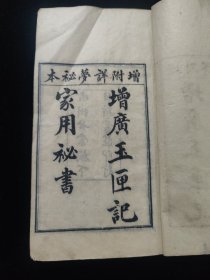 增附詳夢祕本
增廣玉匣記
家用祕書